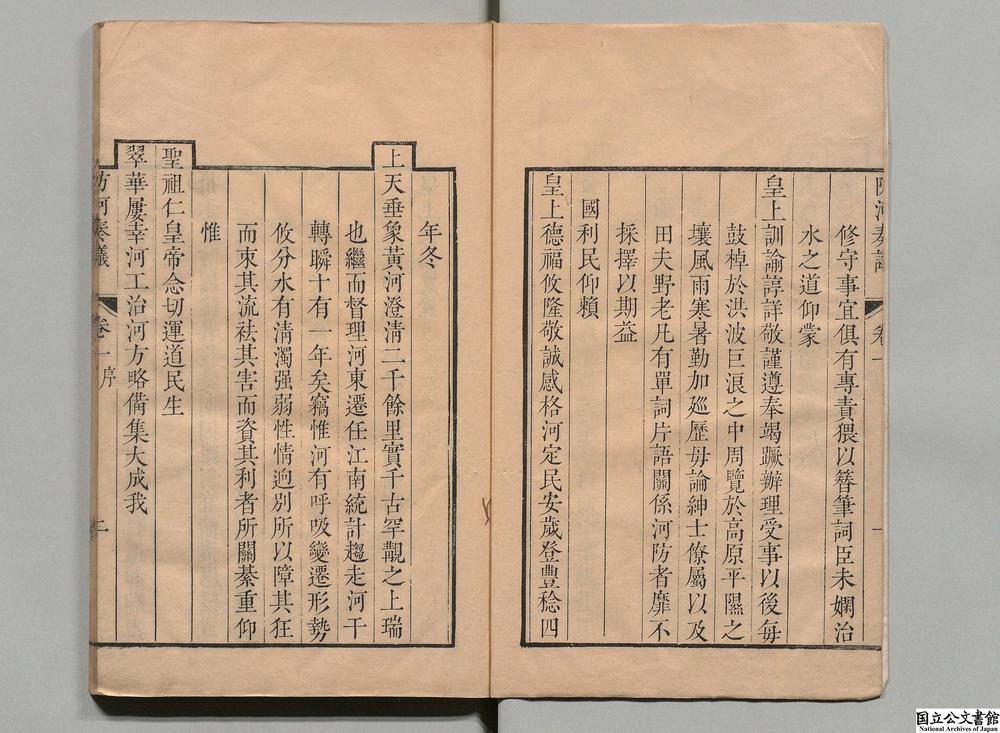 防河奏議
卷一
一
修守事宜俱有專責猥以簪筆詞臣未嫺治
水之道仰蒙
皇上訓諭諄詳敬謹遵奉竭蹶辦理受事以後每
鼓棹於洪波巨浪之中周覽於高原平隰之
壤風雨寒暑勤加廵歷毋論紳士僚屬以及
田夫野老凡有單詞片語關係河防者靡不
採擇以期益
國利民仰賴
皇上德福攸隆敬誠感格河定民安歲登豐稔四
年冬
上天垂象黃河澄清二千餘里實千古罕覯之上瑞
也繼而督理河東遷任江南統計趨走河干
轉瞬十有一年矣竊惟河有呼吸變遷形勢
攸分水有清濁强弱性情逈别所以障其狂
而朿其流祛其害而資其利者所關綦重仰
惟
聖祖仁皇帝念切運道民生
翠華屢幸河工治河方略備集大成我
防河奏議
卷一序
二
国立公文書館
National Archives of Japan